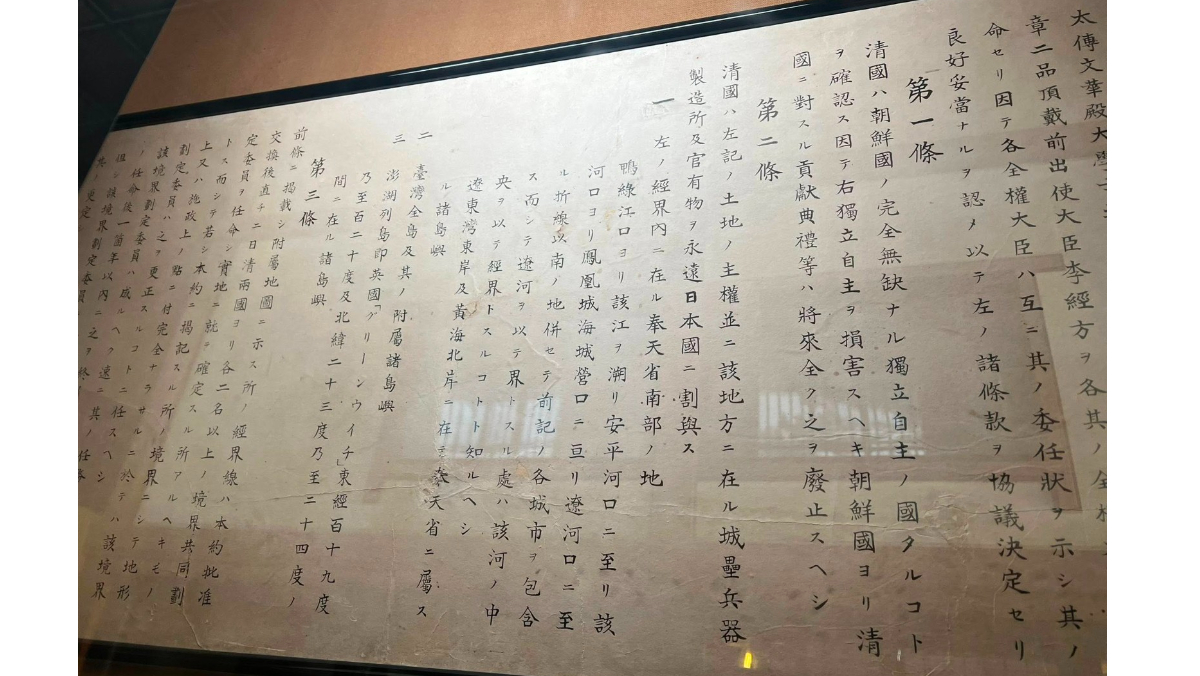 太傅文華殿大學士
章二品頂戴前出使大臣李經方ヲ各其ノ全權
命セリ因テ各全權大臣ハ互ニ其ノ委任狀ヲ示シ其ノ
良好妥當ナルヲ認メ以テ左ノ諸條款ヲ協議決定セリ
第一條
清國ハ朝鮮國ノ完全無缺ナル獨立自主ノ國タルコト
ヲ確認ス因テ右獨立自主ヲ損害スヘキ朝鮮國ヨリ清
國ニ對スル貢獻典禮等ハ將來全ク之ヲ廢止スヘシ
第二條
清國ハ左記ノ土地ノ主權並ニ該地方ニ在ル城壘兵器
製造所及官有物ヲ永遠日本國ニ割與ス
一 左ノ經界內ニ在ル奉天省南部ノ地
鴨綠江口ヨリ該江ヲ溯リ安平河口ニ至リ該
河口ヨリ鳳凰城海城營口ニ亘リ遼河口ニ至
ル折線以南ノ地併セテ前記ノ各城市ヲ包含
ス而シテ遼河ヲ以テ界トスル處ハ該河ノ中
央ヲ以テ經界トスルコト知ルヘシ
遼東灣東岸及黃海北岸ニ在テ奉天省ニ屬ス
ル諸島嶼
二 臺灣全島及其ノ附屬諸島嶼
三 澎湖列島即英國「グリーンウイチ」東經百十九度
乃至百二十度及北緯二十三度乃至二十四度ノ
間ニ在ル諸島嶼
第三條
前條ニ揭載シ附屬地圖ニ示ス所ノ經界線ハ本約批准
交換後直チニ日清兩國ヨリ各二名以上ノ境界共同劃
定委員ヲ任命シ實地ニ就テ確定スル所アルヘキモノ
トス而シテ若シ本約ニ揭記スル所ノ境界ニシテ地形
上又ハ施政上ノ點ニ付完全ナラサルニ於テハ該境界
劃定委員ハ之ヲ更正スルコトニ任スヘシ
該境界劃定委員ハ成ルヘク速ニ其ノ任